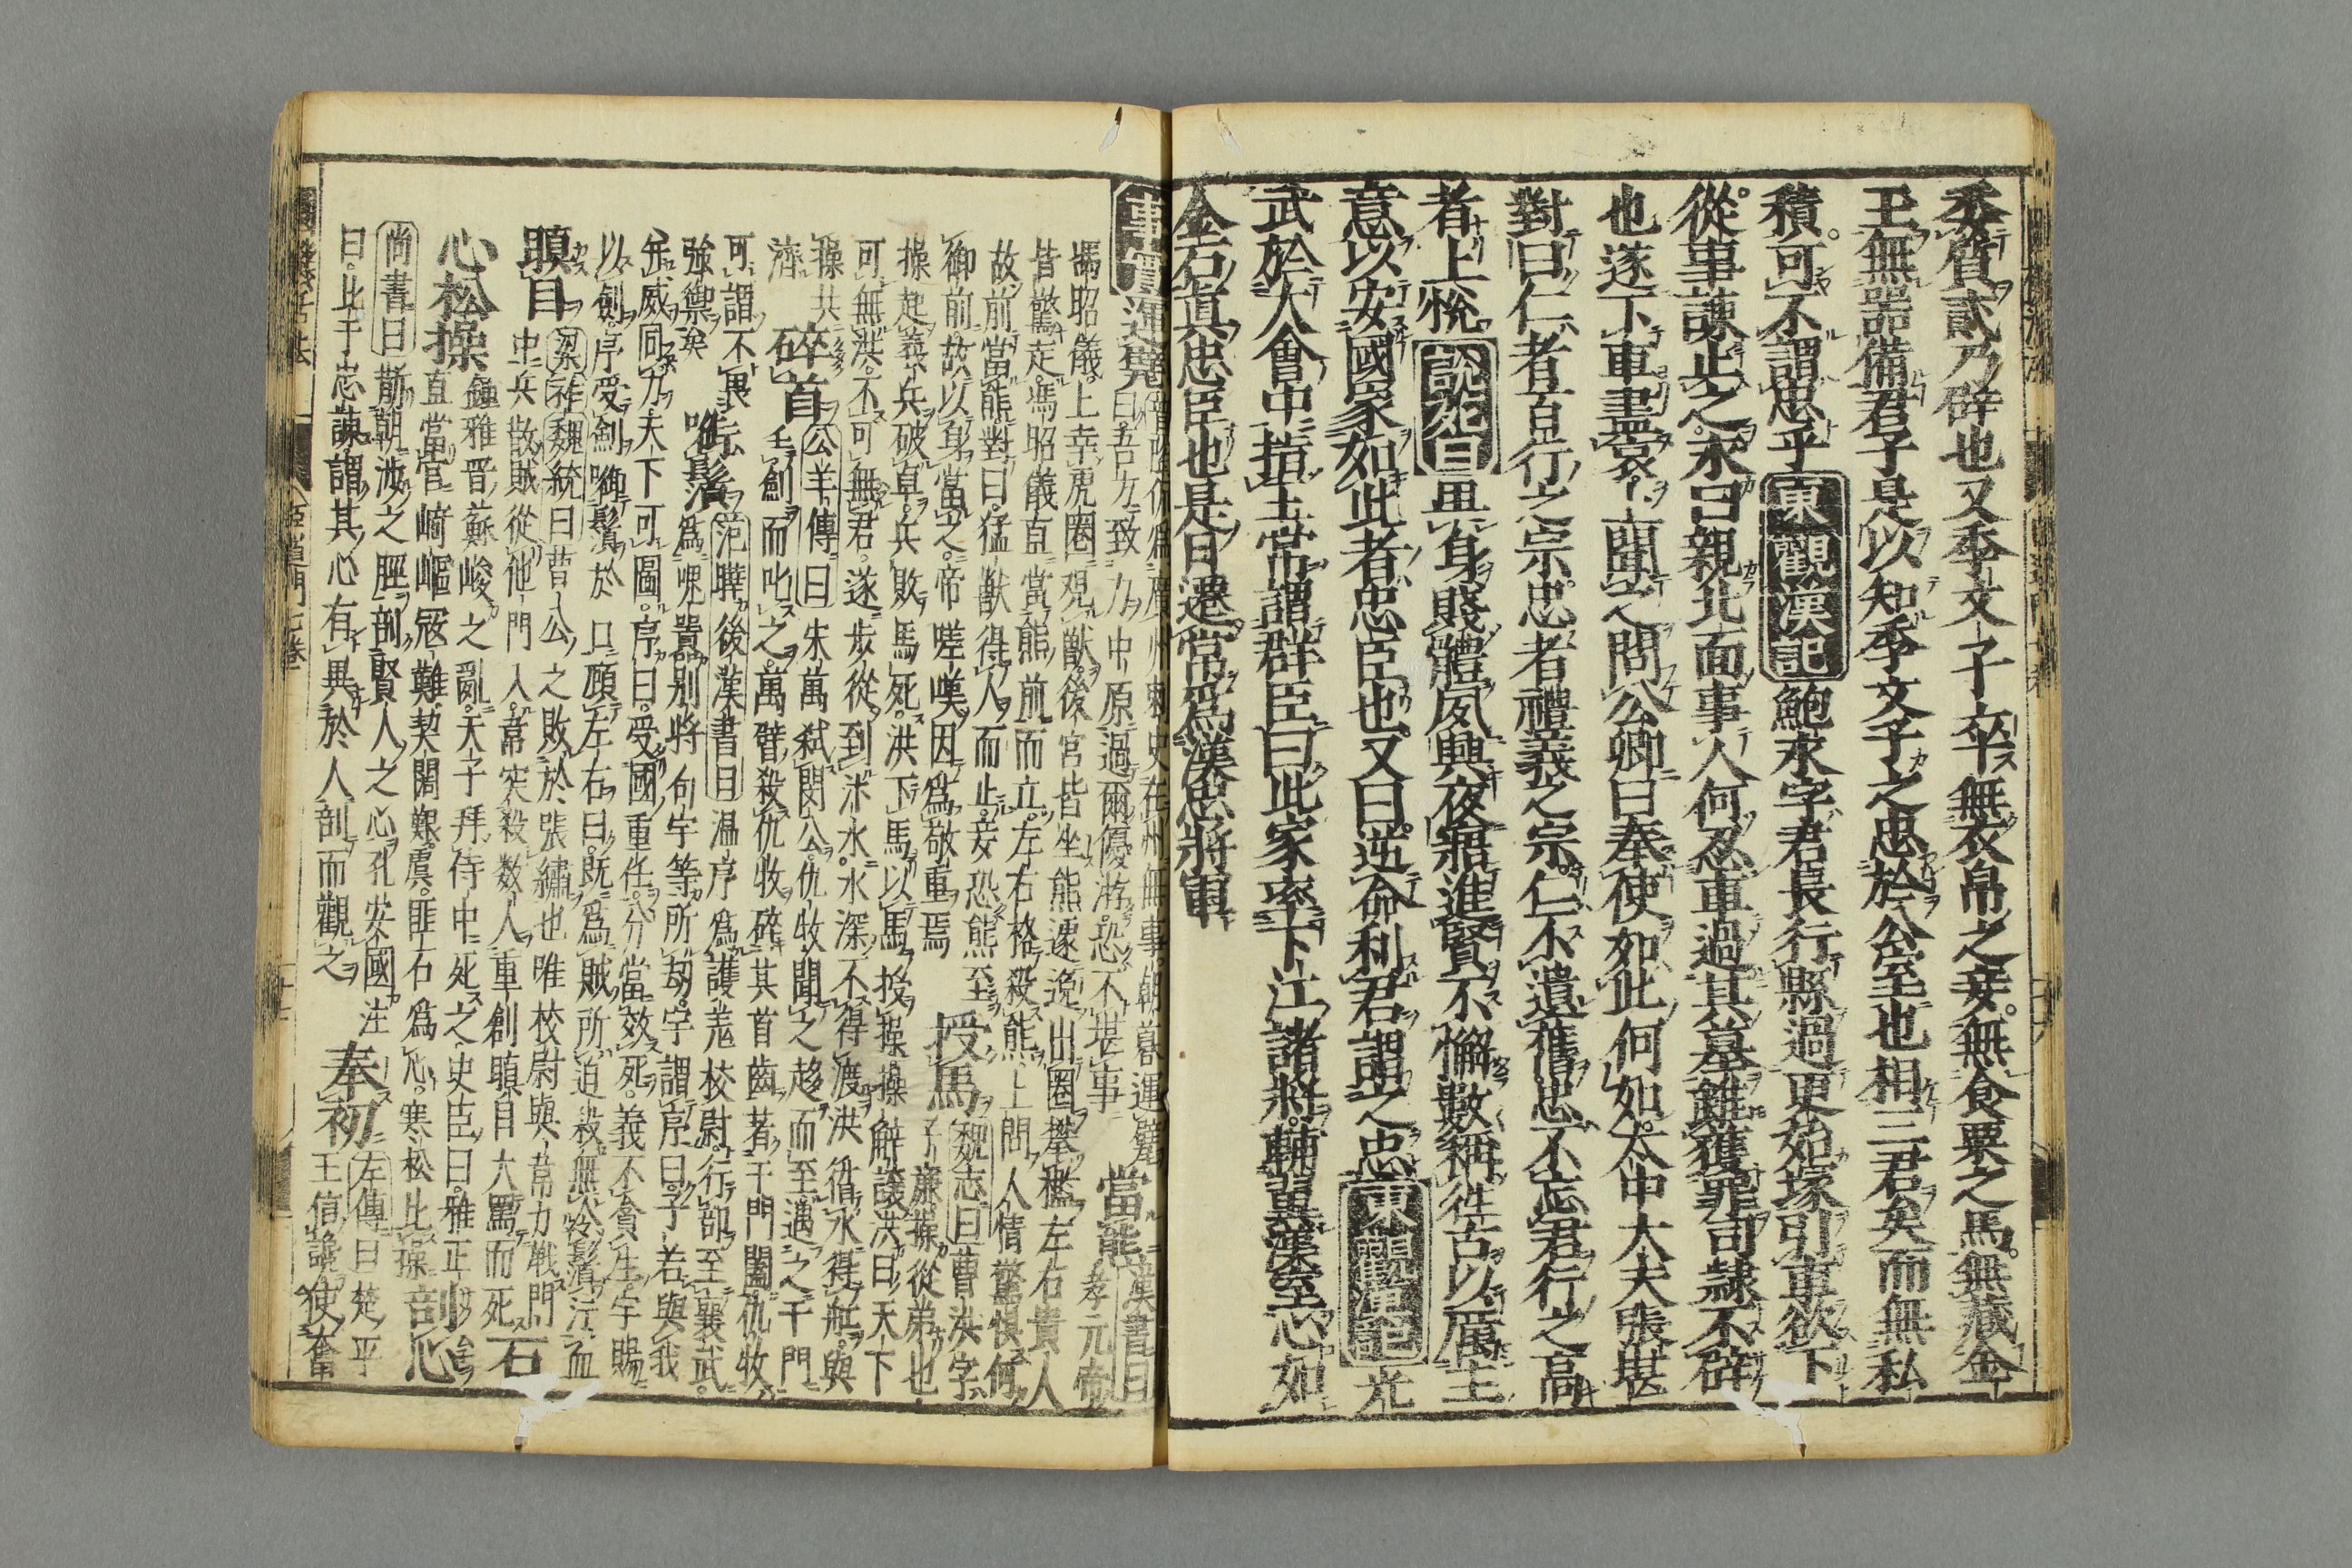 委質貳乃辟也又季文子卒無衣帛之妾無食粟之馬無藏金
玉無器備君子是以知季文子之忠於公室也相三君矣而無私
積可不謂忠乎東觀漢記鮑永字君長行縣過更始塚引車欲下
從事諫止之永曰親北面事人何忍車過其墓雖獲罪司隸不辟
也遂下車盡哀上聞之問公卿曰奉使如此何如太中大夫張堪
對曰仁者百行之宗忠者禮義之宗仁不遺舊忠不忘君行之高
者上悅說苑曰卑身賤體夙興夜寐進賢不懈數稱往古以厲主
意以安國家如此者忠臣也又曰逆命利君謂之忠東觀漢記光
武於大會中指王常謂群臣曰此家率下江諸將輔翼漢室心如
金石真忠臣也是日遷常為漢忠將軍
事實運甓晉陶侃為廣州刺史在州無事朝暮運甓
曰吾方致力中原過爾優游恐不堪事當熊漢書曰孝元帝
馮昭儀上幸虎圈視獸後宮皆坐熊逸出圈攀檻左右貴人
皆驚走馮昭儀直當熊前而立左右格殺熊上問人情驚懼何
故前當熊對曰猛獸得人而止妾恐熊至
御前故以身當之帝嗟嘆因為敬重焉授馬魏志曰曹洪字
子廉操從弟也
操起義兵破卓兵敗馬死洪下馬以馬授操操解讓洪曰天下
可無洪不可無君遂步從到汴水水深不得渡洪循水得舡與
操共濟碎首公羊傳曰宋萬弒閔公仇牧聞之趨而至遇之于門
手劍而叱之萬臂殺仇牧碎其首齒著于門闔仇牧
可謂不畏強禦矣啣鬚後漢書曰溫序為護羌校尉行部至襄武
為隗囂別將苟宇等所劫宇謂序曰子若與我
并威同力天下可圖序曰受國重任分當效死義不貪生宇賜
以劍序受劍啣鬚於口顧左右曰既為賊所迫殺無令鬚汙血
瞋目魏統曰曹公之敗於張繡也唯校尉與韋力戰門
中兵散賊從他門入韋突殺數人重創瞋目大罵而死石
心松操鍾雅晉蘇峻之亂天子拜侍中死之史臣曰雅正
直當官崎嶇寇難契闊艱虞匪石為心寒松比操剖心
尚書曰斮朝涉之脛剖賢人之心孔安國注
曰比干忠諫謂其心有異於人剖而觀之奉初左傳曰楚平
王信讒使奮